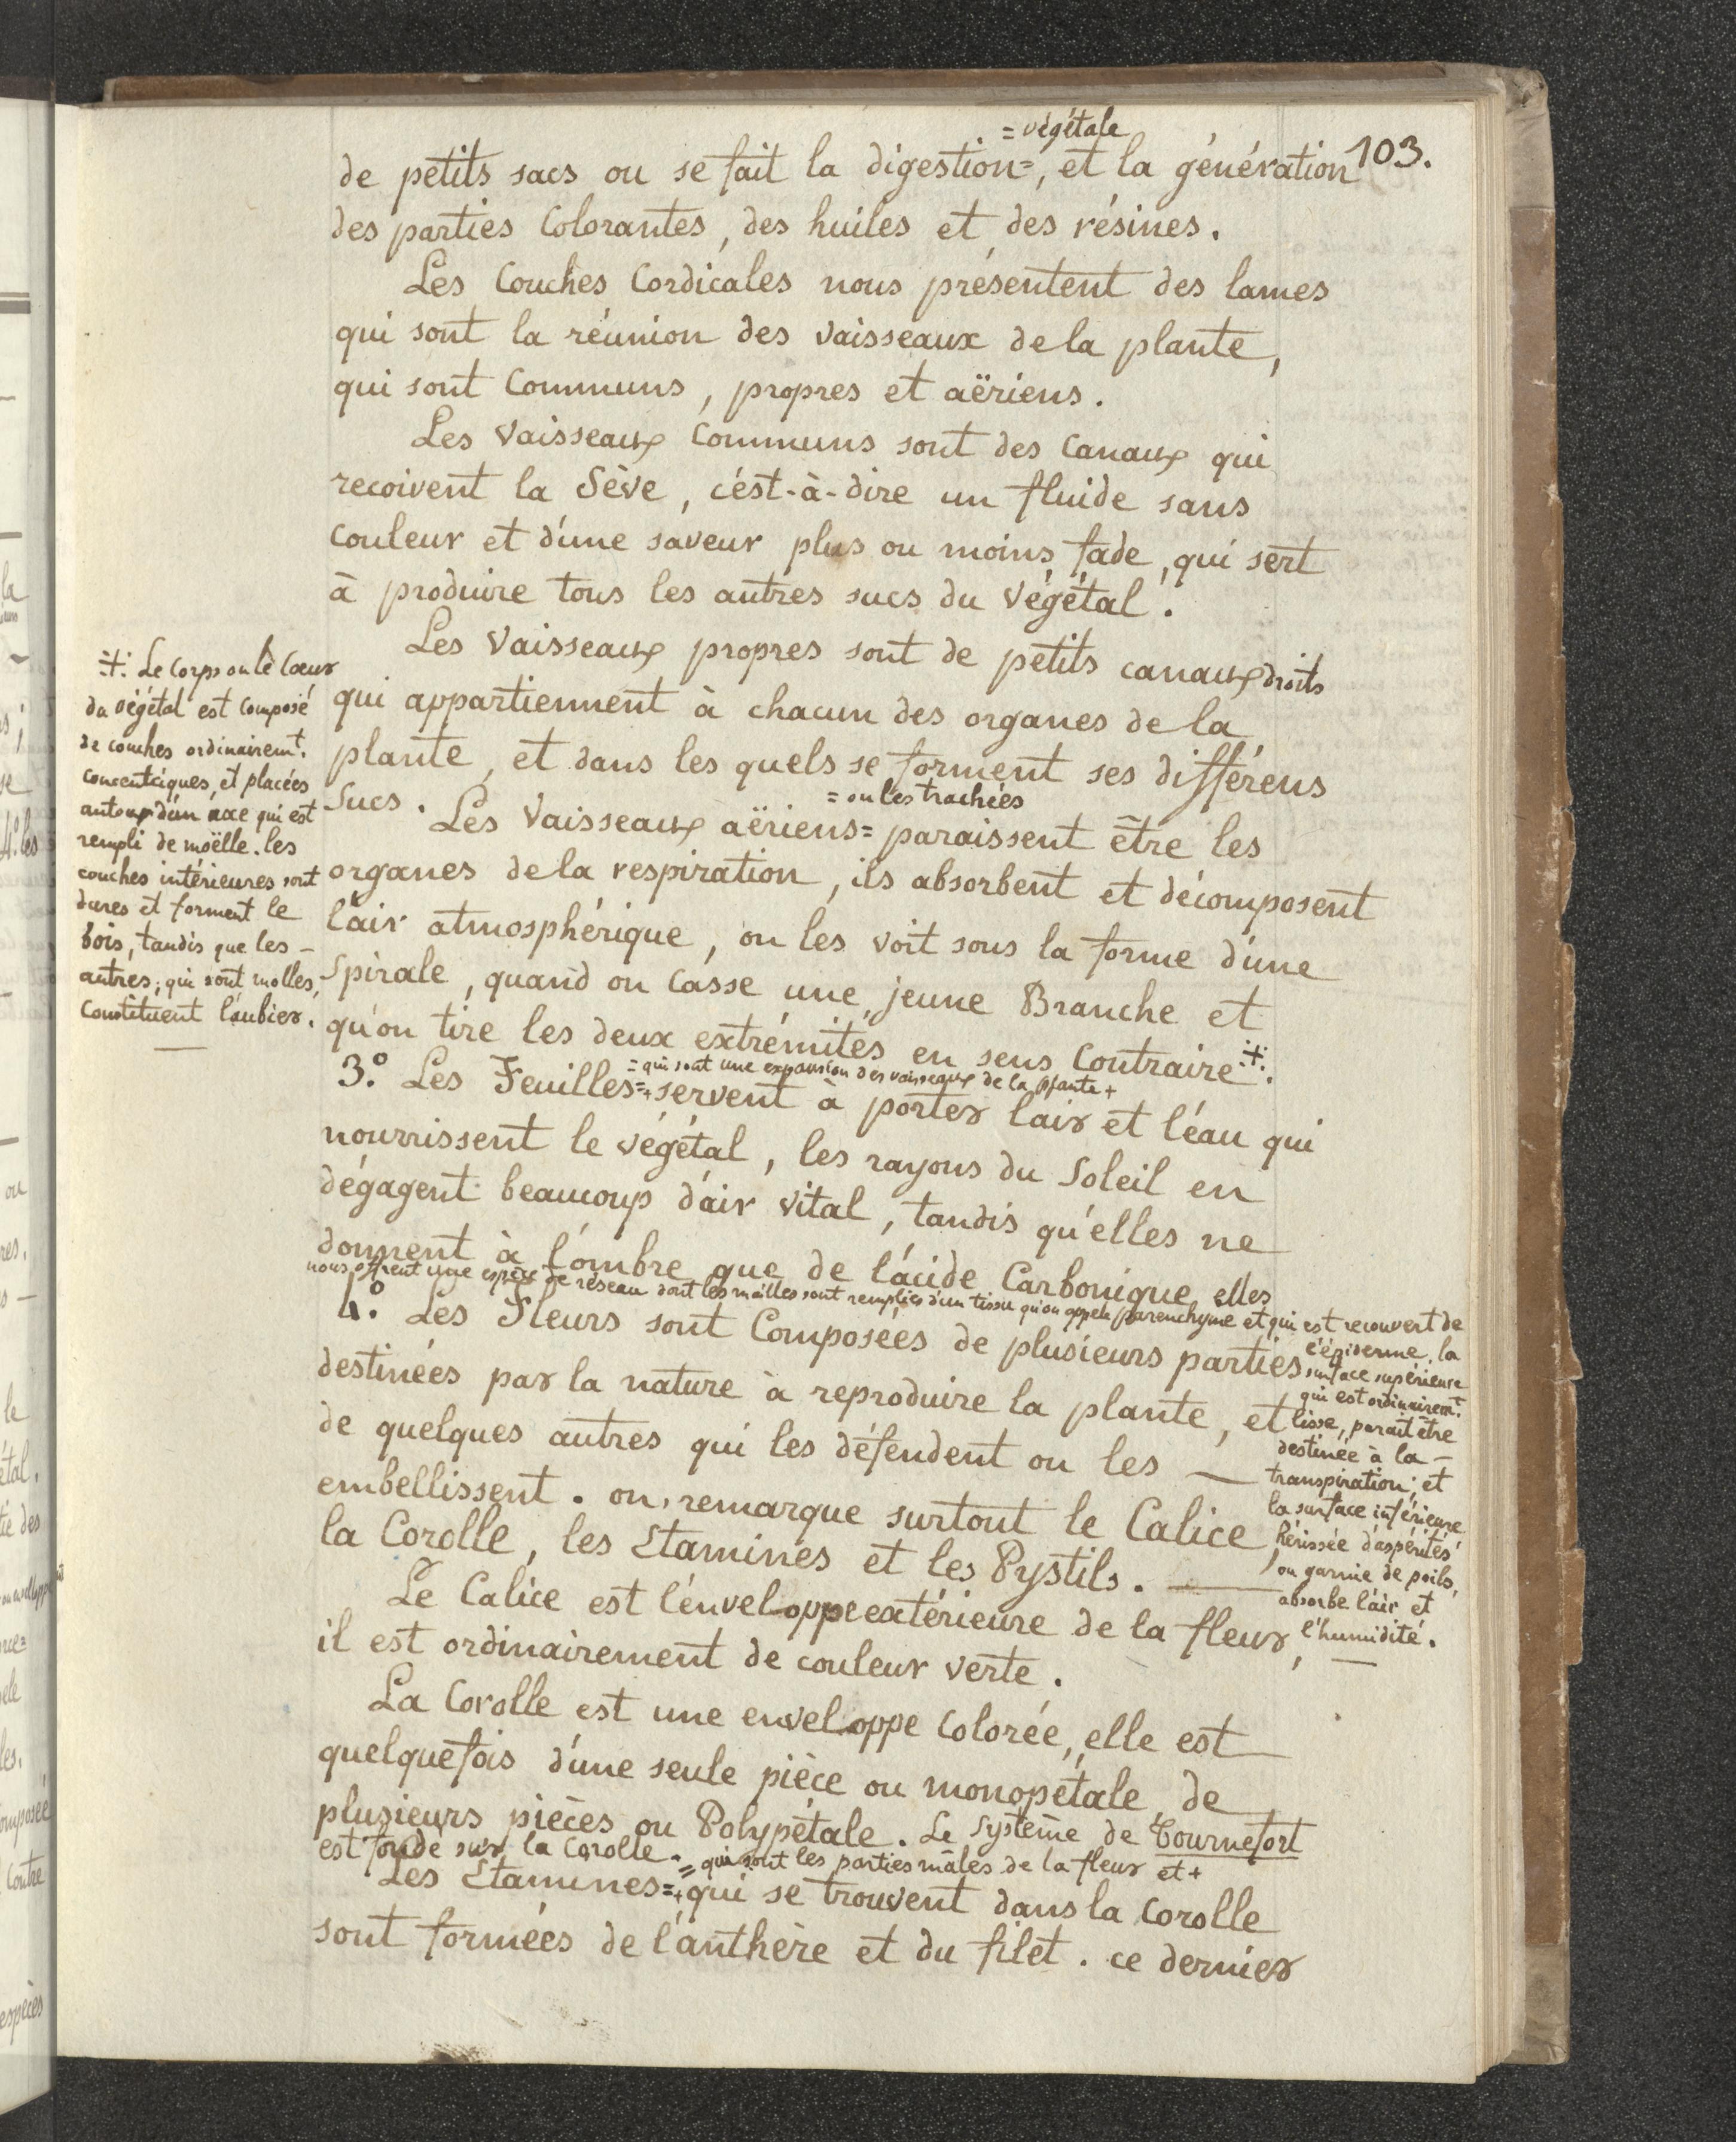 103.
= végétale
de petits sacs ou se fait la digestion=, et la génération
des parties Colorantes, des huiles et des résines.
Les Couches Cordicales nous présentent des lames
qui sont la réunion des vaisseaux de la plante,
qui sont Communs, propres et aëriens.
Les Vaisseaux Communs sont des Canaux qui
recoivent la Sève, c'ést-à-dire un fluide sans
couleur et d'une saveur plus ou moins fade, qui sert
à produire tous les autres sucs du Végétal.
Les Vaisseaux propres sont de petits canaux droits
qui appartiennent à chacun des organes de la
plante, et dans les quels se forment ses différens
Sucs.
= ou les trachées
Les Vaisseaux aëriens= paraissent être les
organes de la respiration, ils absorbent et décomposent
l'air atmosphérique, on les voit sous la forme d'une
Spirale, quand on Casse une jeune Branche et
qu'on tire les deux extrémités en sens Contraire ·+·.
·+· Le Corps ou le Coeur
du végétal est composé
de couches ordinairemt.
concentriques, et placées
autour d'un axe qui est
rempli de moëlle. les
couches intérieures sont
dures et forment le
bois, tandis que les —
autres, qui sont molles,
Constituent l'aubier.
= qui sont une expansion des vaisseaux de la plante +
3.° Les Feuilles=+ servent à porter l'air et l'éau qui
nourrissent le végétal, les rayons du Soleil en
dégagent beaucoup d'air vital, tandis qu'elles ne
donnent à l'ombre que de l'ácide Carbonique, elles
nous offrent une espèce de réseau dont les mailles sont remplies d'un tissu qu'on appele parenchyme et qui est recouvert de
l'épiderme. la
surface supérieure
qui est ordinairemt.
lisse, parait être
destinée à la —
transpiration; et
la surface inférieure
hérissée d'aspérités
ou garnie de poils,
absorbe l'air et
l'humidité.
4.° Les Fleurs sont Composées de plusieurs parties
destinées par la nature à reproduire la plante, et
de quelques autres qui les défendent ou les —
embellissent. on remarque surtout le Calice,
la Corolle, les Etamines et les Pystils. —
Le Calice est l'énveloppe extérieure de la fleur,
il est ordinairement de couleur verte.
La Corolle est une enveloppe Colorée, elle est
quelquefois d'une seule pièce ou monopétale, de
plusieurs pièces ou Polypétale. Le Système de Tournefort
est fondé sur la Corolle.
= qui sont les parties mâles de la fleur et +
Les Etamines=+ qui se trouvent dans la Corolle
sont formées de l'anthère et du filet. ce dernier